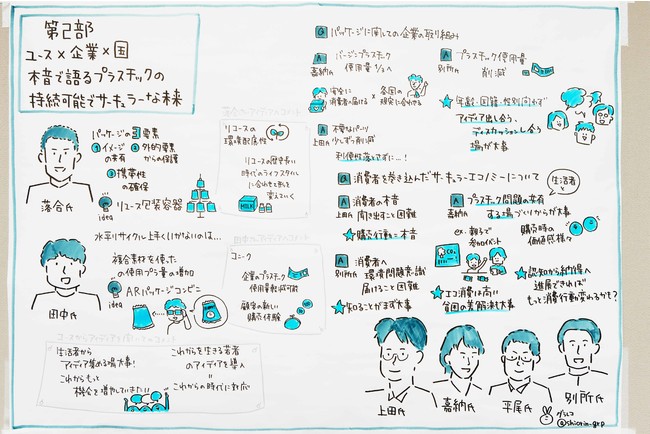 第2部
ユース×企業×国
本音で語るプラスチックの
持続可能でサーキュラーな未来
パッケージの3要素
①イメージの共有
②外的要素からの保護
③携帯性の確保
idea
リユース包装容器
落合氏
水平リサイクル上手くいかないのは…
複合素材を使った
の使用プラ量の増加
idea
ARパッケージコンビニ
田中氏
リユースの
環境配慮性
リユースの歴史長い
時代のライフスタイル
に合わせて形を
変えていく
MILK
ユニーク
企業のプラスチック
使用量削減可能
顧客の新しい
購買体験
生活者から
アイディア集める場大事!
これからもっと
機会を増やしていきたい!
これからを生きる若者
のアイディアを導入
これからの時代に対応
Q パッケージに関しての企業の取り組み
A 嘉納氏 バージンプラスチック
使用量1/2へ
A 別所氏 プラスチック使用量
削減
安全に
消費者へ届ける
×
各国の
規定に合わせる
A 上田氏 不要なパーツ
少しずつ削減
利便性落とさずに…!
★年齢・国籍・性別問わず
アイディア出し合う、
ディスカッションし合う
場が大事
Q 消費者を巻き込んだサーキュラーエコノミーについて
生活者
A 上田氏 消費者の本音
聞き出すこと困難
★購買行動=本音
A 嘉納氏 プラスチック問題の共有
する場づくりからが大事
ex. 親子で
参加イベント
CO2
購買時の
価値感様々
A 別所氏 消費者へ
環境問題意識
届けること困難
★知ることがまず大事
★エコ消費は高い
★認知から納得へ
進展できれば
もっと消費行動変わるかも?
上田氏
嘉納氏
平尾氏
別所氏
グラレコ
@shiorin_grp